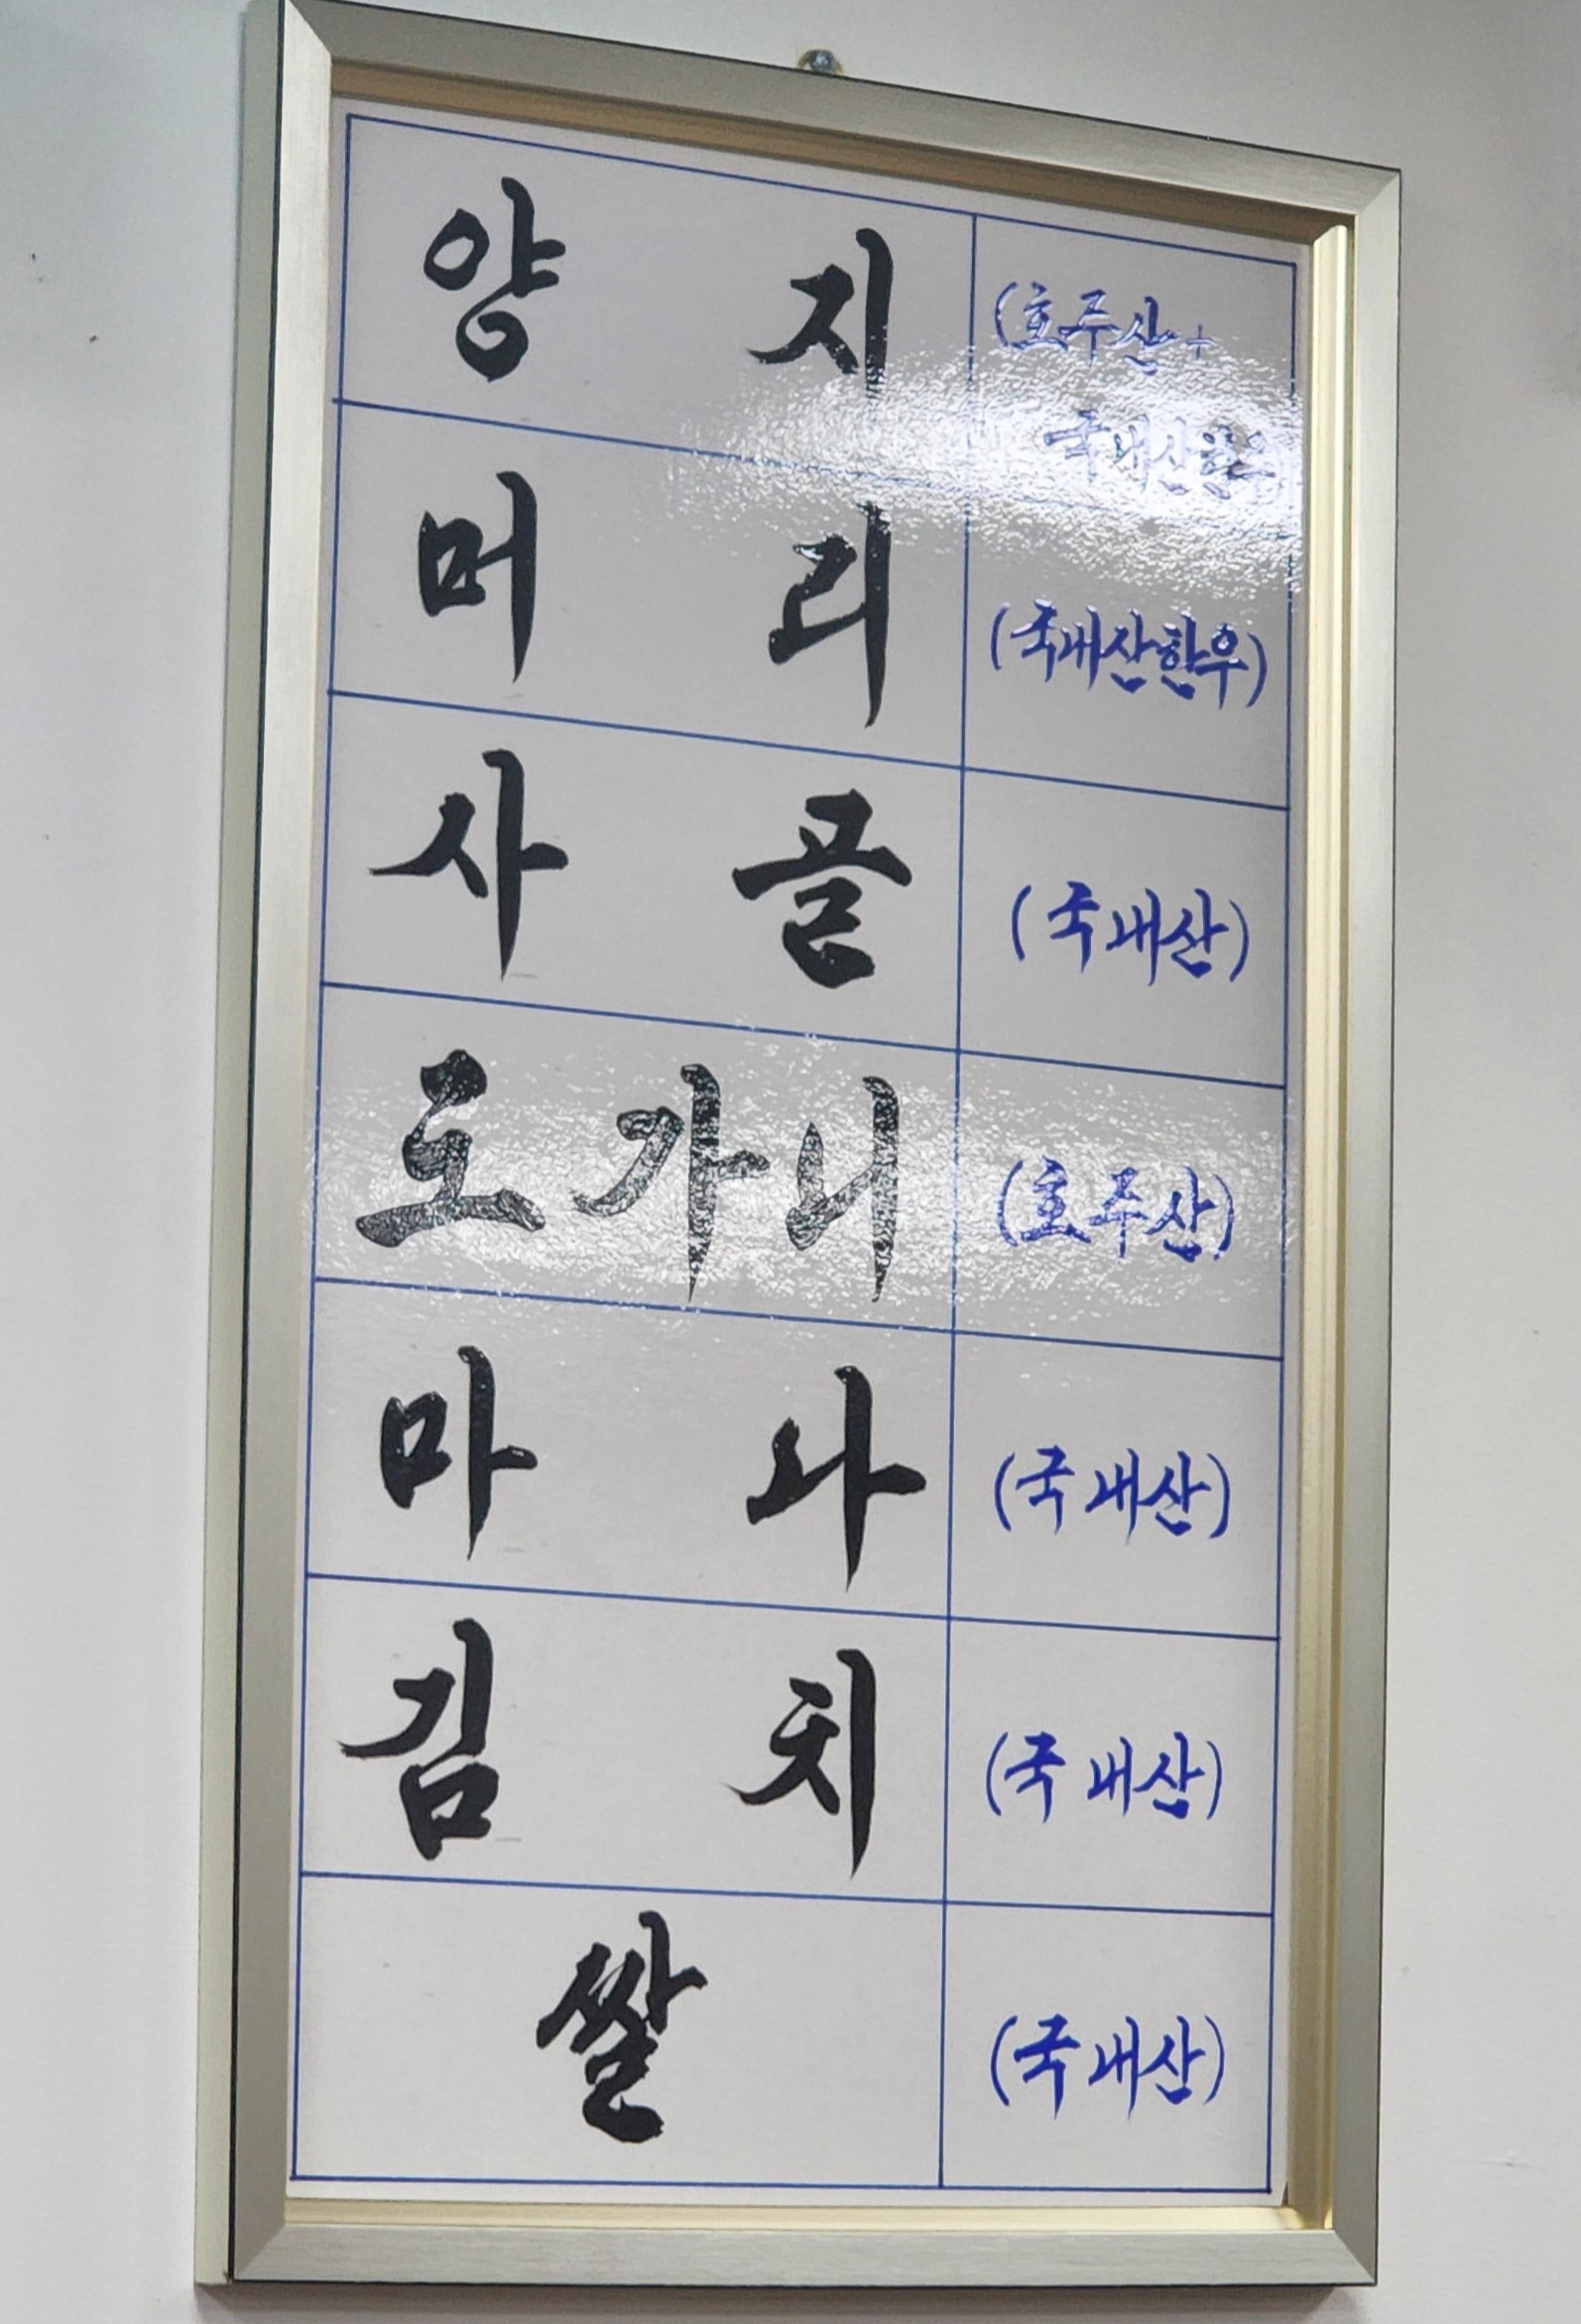 양지 (호주산+
국내산한우)
머리 (국내산한우)
사골 (국내산)
도가니 (호주산)
마나 (국내산)
김치 (국내산)
쌀 (국내산)